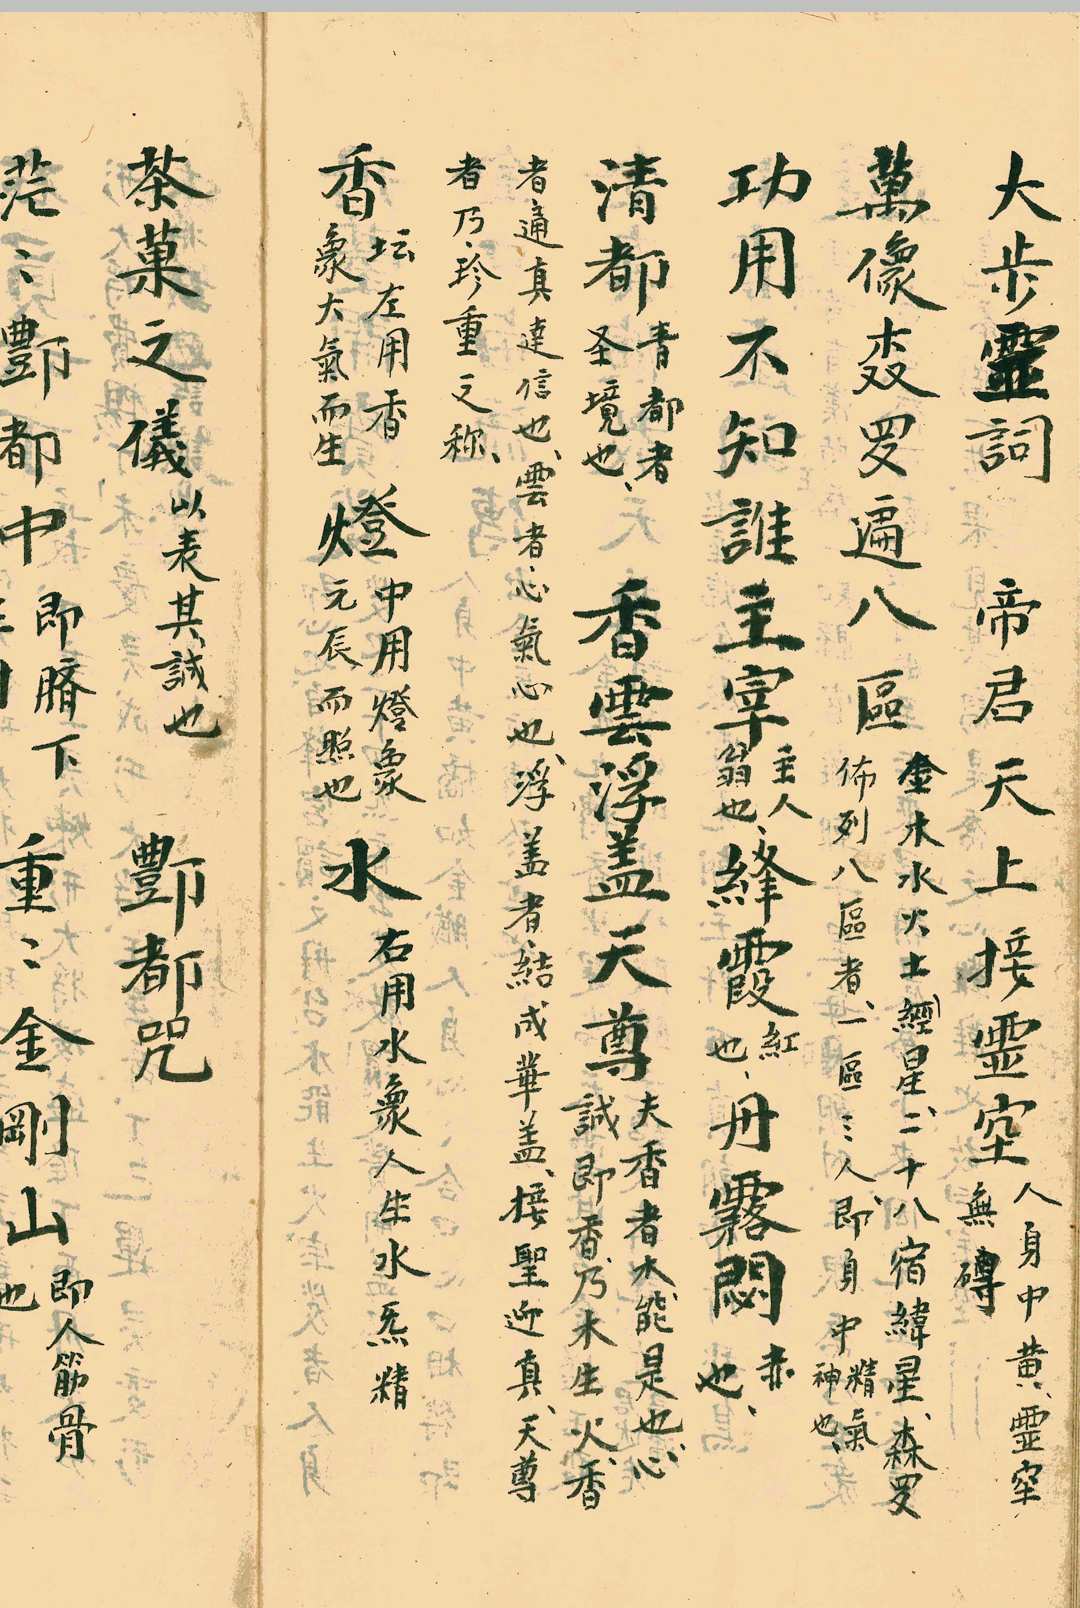 大步靈詞　帝君天上接霊空人身中黄霊空
無礴
萬像森罗遍八區金木水火土經星二十八宿緯星森罗
佈列八區者一區三人即身中精氣
神也
功用不知誰主宰主人
翁也絳霞紅
也丹霧悶赤
也
清都青都者
圣境也香雲浮盖天尊夫香者水能是也心
誠即香乃木生火香
者通真達信也雲者心氣心也浮盖者結成華盖接聖迎真天尊
者乃珍重之称
香坛左用香
象大氣而生燈中用燈象
元辰而照也水右用水象人生水炁精
茶菓之儀以表其誠也　酆都咒
茫〻酆都中即臍下　重〻金剛山即人筋骨
也